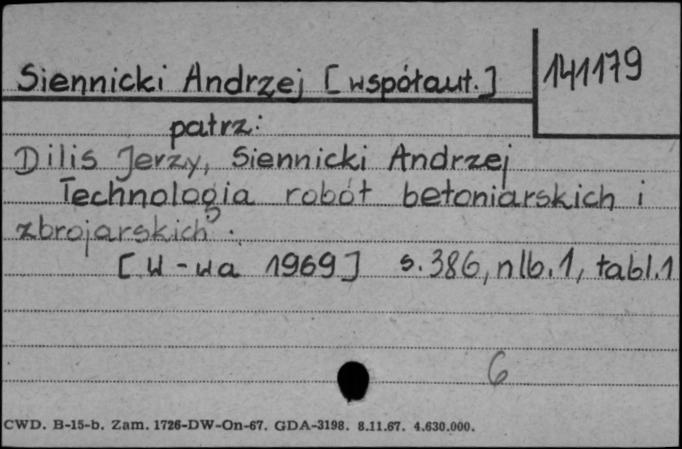 Siennicki Andrzej [współaut.]
141179
patrz:
Dilis Jerzy, Siennicki Andrzej
Technologia robót betoniarskich i
zbrojarskich.
[W-wa 1969] s. 386, nlb. 1, tabl. 1
6
CWD. B-15-b. Zam. 1726-DW-On-67. GDA-3198. 8.11.67. 4.630.000.